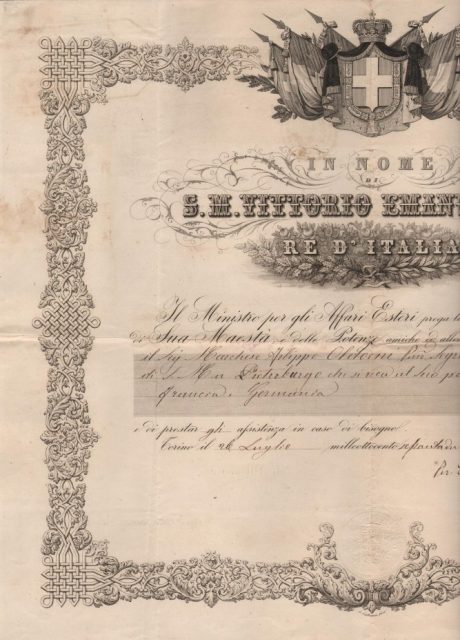 IN NOME
DI
S. M. VITTORIO EMAN
RE D'ITALIA
Il Ministro per gli Affari Esteri prega le
di Sua Maestà e delle Potenze amiche ed allea
il Sig. Marchese Filippo Oldoini
di S. M. a Pietroburgo che si reca al suo po
Francia e Germania
e di prestar gli assistenza in caso di bisogno
Torino il 26 Luglio milleottocento
Per